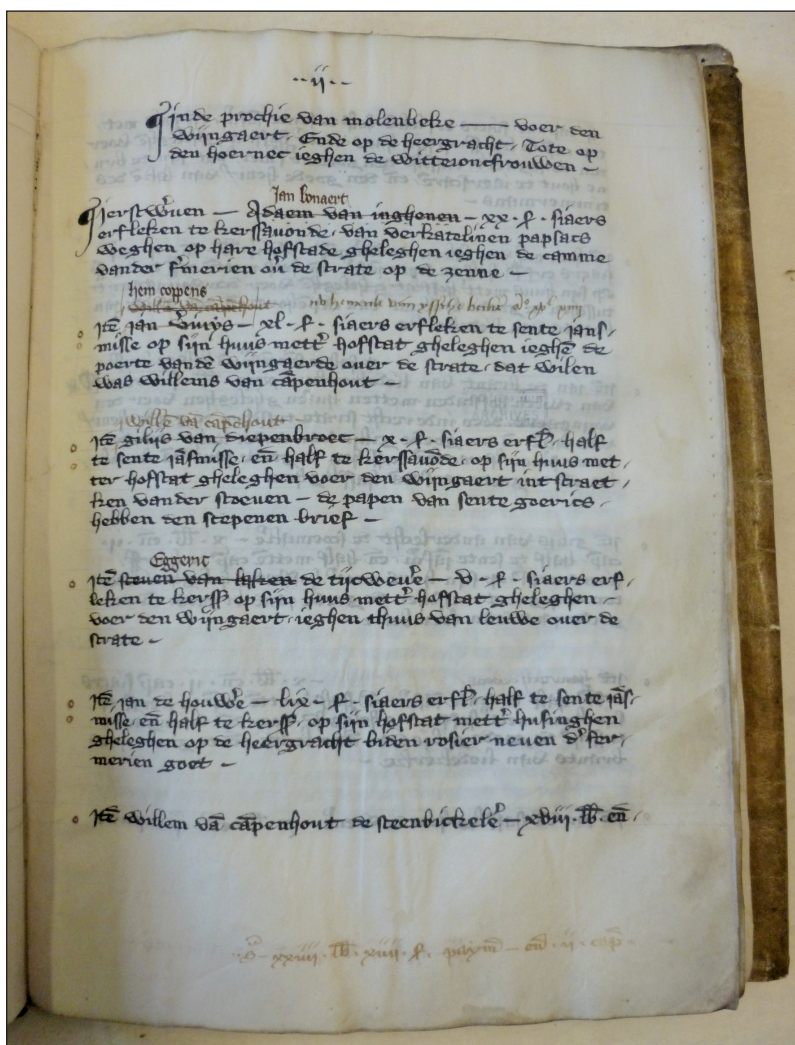 ..ij..
Inde prochie van molenbeke — voer den
wijngaert. Ende op de heergracht. Tote op
den hoernec ieghen de witteioncfrouwen –
Jan Conaert
Ierstwͤuen — Adaem van inghenen – xx. ꝑ. siaers
erfleken te kerssauonde. van verkatelinen papsacs
weghen op hare hofstade gheleghen ieghen de camme
vander f̄merien ou̅ de strate op de zenne –
hem coppens
Willē vā cāpēhout
Jtē jan – xl. ꝑ. siaers erfleken te sente jans,
misse op sijn huus mett̛ hofstat gheleghen ieghē de
poerte vandē wijngaerde ouer de strate. dat wilen
was willems van cāpenhout –
Willē vā cāpēhout
Jtē gilijs van diepenbroec – x. ꝑ. siaers erfl̄. half
te sente jāsmisse. eñ half te kerssauōde. op sijn huus met,
ter hofstat gheleghen voer den wijngaert int straet,
ken vander stoeuen – de papen van sente goerics,
hebben den scepenen brief –
Eggeric
Jtē steuen van laken de tijcweu̅e – v. ꝑ. siaers erf,
leken te kerss̄ op sijn huus mett̛ hofstat gheleghen –
voer den wijngaert. ieghen thuus van leuwe ouer de
strate –
Jtē jan de houwe̛ – lix. ꝑ. siaers erfl̄. half te sente jās,
misse eñ half te kerss̄. op sijn hofstat mett̛ husinghen
gheleghen op de heergracht biden rosier neuen d̛ fer,
merien goet –
Jtē willem vā cāpenhout de steenbickele̛ – xviii. lb̄. eñ,
xxiiii. lb̄. xiiii. ꝑ. paym̄ – eñ. ii. cap̄.